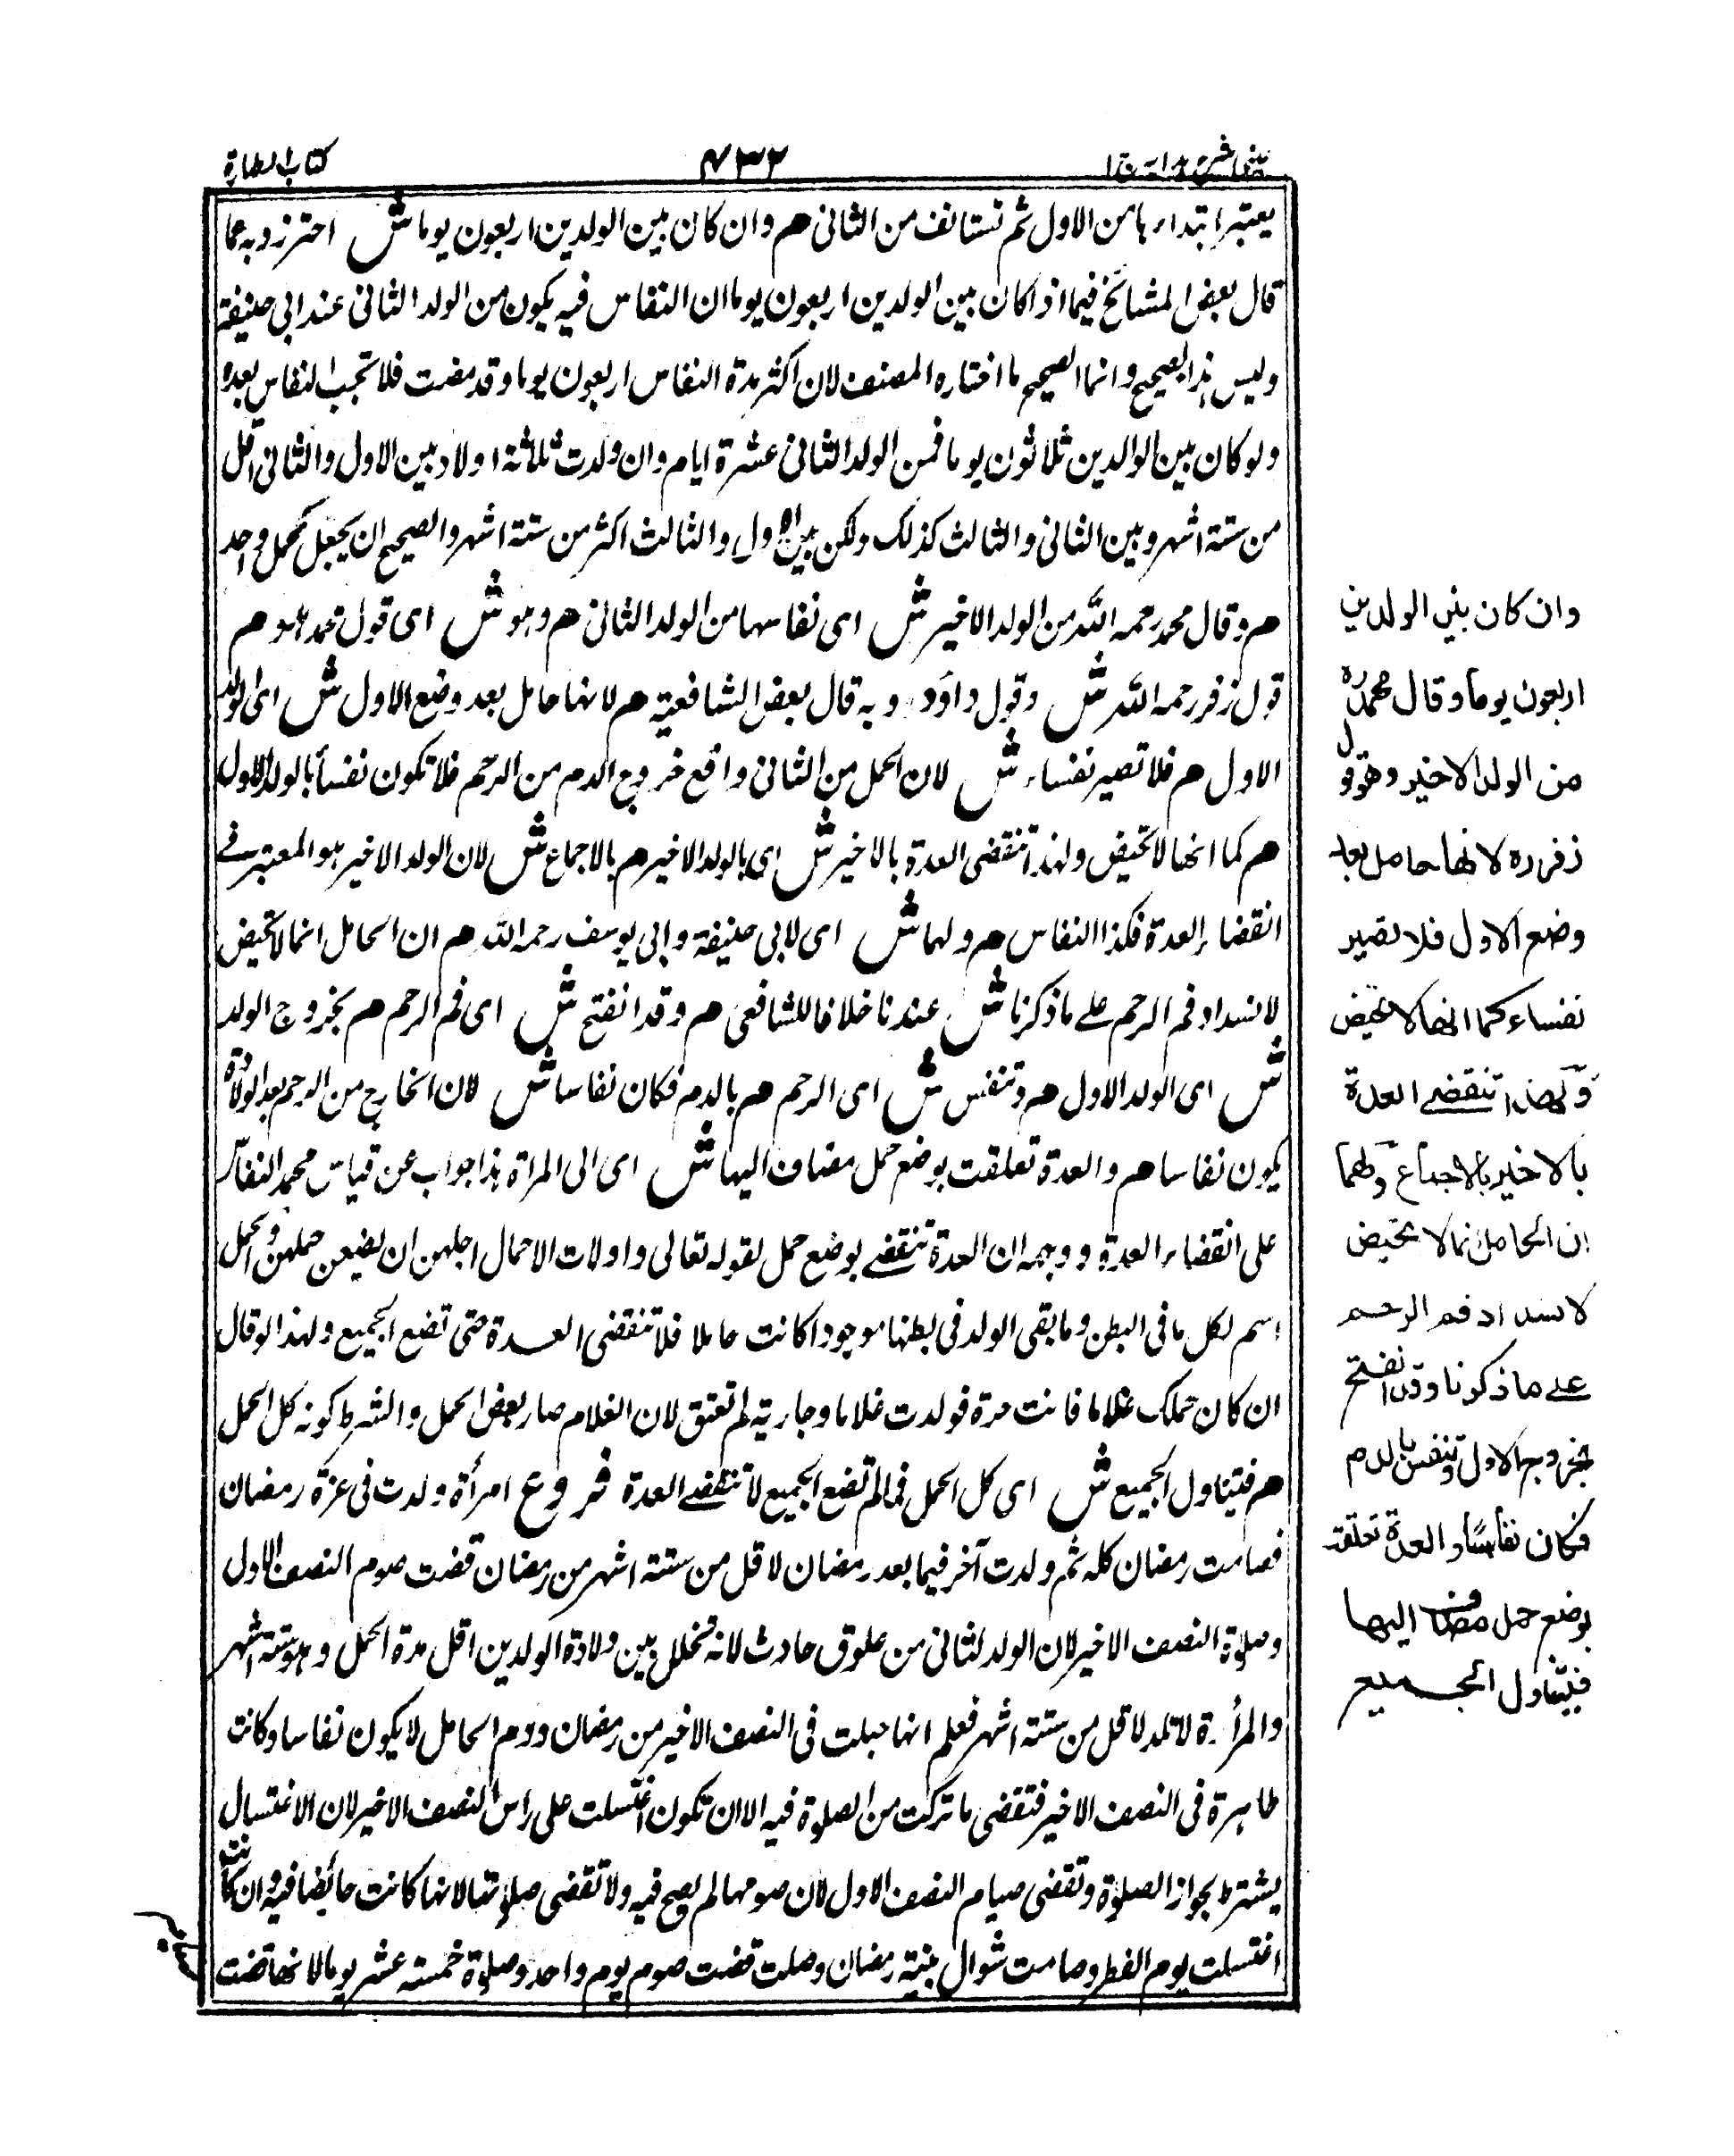 عينى شرح هداية ج ا
٧٣٢
كتاب الطهارة
يعتبر ابتداءها من الاول ثم تستانف من الثانى هم وان كان بين الولدين اربعون يوما ش احترزوبه عما
قال بعض المشائخ فيما اذا كان بين الولدين اربعون يوما ان النفاس فيه يكون من الولد الثانى عند ابى حنيفة
وليس هذا بصحيح وانما الصحيح ما اختاره المصنف لان اكثر مدة النفاس اربعون يوما وقد مضت فلا تجب النفاس بعده
ولو كان بين الوالدين ثلاثون يوما فمن الولد الثانى عشرة ايام وان ولدت ثلاثة اولاد بين الاول والثانى اقل
من ستة اشهر وبين الثانى والثالث كذلك ولكن بين الاول والثالث اكثر من ستة اشهر والصحيح ان يجعل كحمل واحد
هم وقال محمد رحمه الله من الولد الاخير ش اى نفاسها من الولد الثانى هم وهو ش اى قول محمد هو هم
قول زفر رحمه الله ش وقول داؤد وبه قال بعض الشافعية هم لانها حامل بعد وضع الاول ش اى الولد
الاول هم فلا تصير نفساء ش لان الحمل من الثانى واقع خروج الدم من الرحم فلا تكون نفسأ بالولد الاول
هم كما انها لا تحيض ولهذا تنقضى العدة بالاخير ش اى بالولد الاخير هم بالاجماع ش لان الولد الاخير هو المعتبر فى
انقضاء العدة فكذا النفاس هم ولهما ش اى لابى حنيفة وابى يوسف رحمه الله هم ان الحامل انما لا تحيض
لانسداد فم الرحم على ما ذكرنا ش عندنا خلافا للشافعى هم وقد انفتح ش اى فم الرحم هم بخروج الولد
ش اى الولد الاول هم وتنفس ش اى الرحم هم بالدم فكان نفاسا ش لان الخارج من الرحم بعد الولادة
يكون نفاسا هم والعدة تعلقت بوضع حمل مضاف اليها ش اى الى المراة هذا جواب عن قياس محمد النفاس
على انقضاء العدة ووجهه ان العدة تنقضے بوضع حمل لقوله تعالى واولات الاحمال اجلهن ان يضعن حملهن والحمل
اسم لكل ما فى البطن وما بقى الولد فى بطنها موجودا كانت حاملا فلا تنقضى العدة حتى تضع الجميع ولهذا لو قال
ان كان حملك غلاما فانت حرة فولدت غلاما وجارية لم تعتق لان الغلام صار بعض الحمل والشرط كونه كل الحمل
هم فيتناول الجميع ش اى كل الحمل فمالم تضع الجميع لا تنقضے العدة فروع امرأة ولدت فى غرة رمضان
فصامت رمضان كله ثم ولدت آخر فيما بعد رمضان لاقل من ستة اشهر من رمضان قضت صوم النصف الاول
وصلوة النصف الاخير لان الولد الثانى من علوق حادث لانه تخلل بين ولادة الولدين اقل مدة الحمل وهو ستة اشهر
والمرأة لا تلد لاقل من ستة اشهر فعلم انها حبلت فى النصف الاخير من رمضان ودم الحامل لا يكون نفاسا وكانت
طاهرة فى النصف الاخير فتقضى ما تركت من الصلوة فيه الا ان تكون اغتسلت على راس النصف الاخير لان الاغتسال
يشترط لجواز الصلوة وتقضى صيام النصف الاول لان صومها لم يصح فيه ولا تقضى صلاتها لانها كانت حائضا فيه وان كانت
اغتسلت يوم الفطر وصامت شوال بنية رمضان وصلت قضت صوم يوم واحد وصلوة خمسة عشر يوما لانها قضت
وان كان بين الولدين
اربعون يوما وقال محمد ره
من الولد الاخير وهو قول
زفر ره لانها حامل بعد
وضع الاول فلا تصير
نفساء كما انها لا تحيض
ولهذا تنقضے العدة
بالاخير بالاجماع ولهما
ان الحامل انما لا تحيض
لانسداد فم الرحم
على ما ذكرنا وقد انفتح
بخروج الاول وتنفس بالدم
فكان نفاسًا والعدة تعلقت
بوضع حمل مضاف اليها
فيتناول الجميع